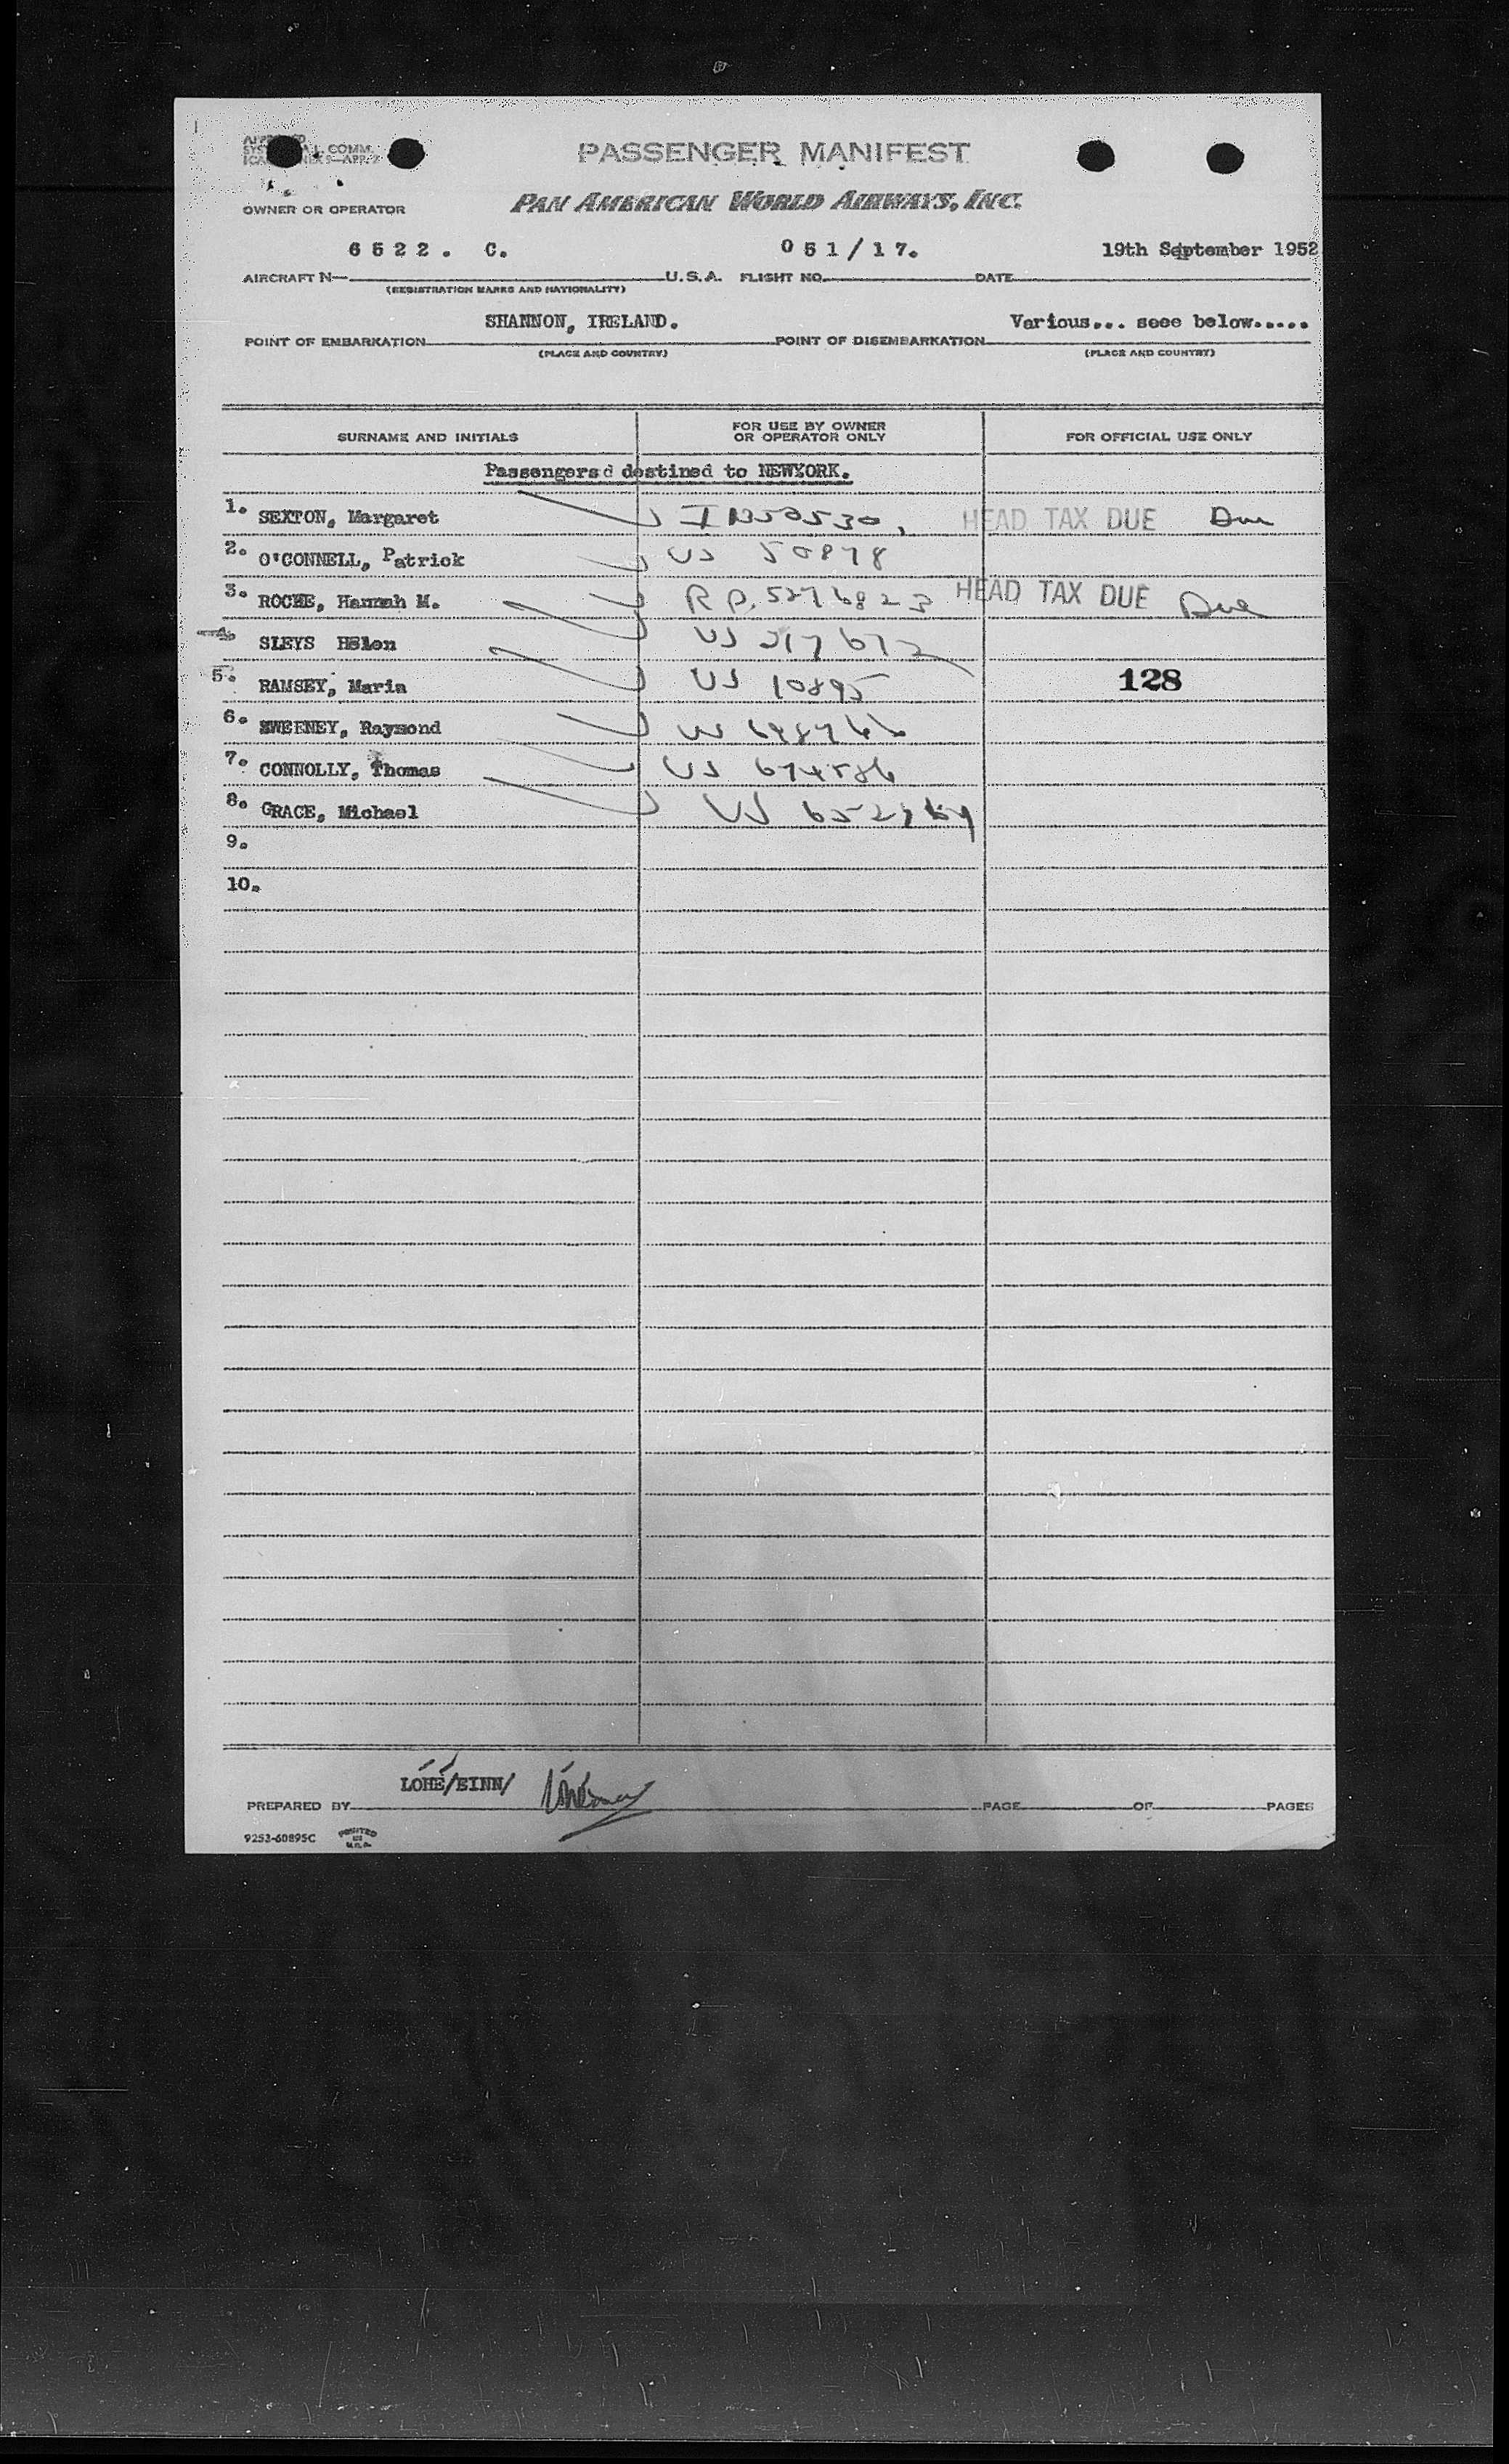 PASSENGER MANIFEST
OWNER OR OPERATOR
PAN AMERICAN WORLD AIRWAYS, INC.
6522. C. 051/17. 19th September 1952
AIRCRAFT N— U.S.A. FLIGHT NO. DATE
(REGISTRATION MARKS AND NATIONALITY)
SHANNON, IRELAND. Various... seee below.....
POINT OF EMBARKATION POINT OF DISEMBARKATION
(PLACE AND COUNTRY) (PLACE AND COUNTRY)
SURNAME AND INITIALS FOR USE BY OWNER OR OPERATOR ONLY FOR OFFICIAL USE ONLY
Passengersd destined to NEWYORK.
1. SEXTON, Margaret HEAD TAX DUE Due
2. O'CONNELL, Patrick US 50878
3. ROCHE, Hannah M. R P. 5276823 HEAD TAX DUE Due
4. SLEYS Helen US 217672
5. RAMSEY, Maria US 10895 128
6. SWEENEY, Raymond US
7. CONNOLLY, Thomas US 674586
8. GRACE, Michael US
9.
10.
LÓHÉ/EINN/
PREPARED BY PAGE OF PAGES
9253-60895C PRINTED IN U.S.A.